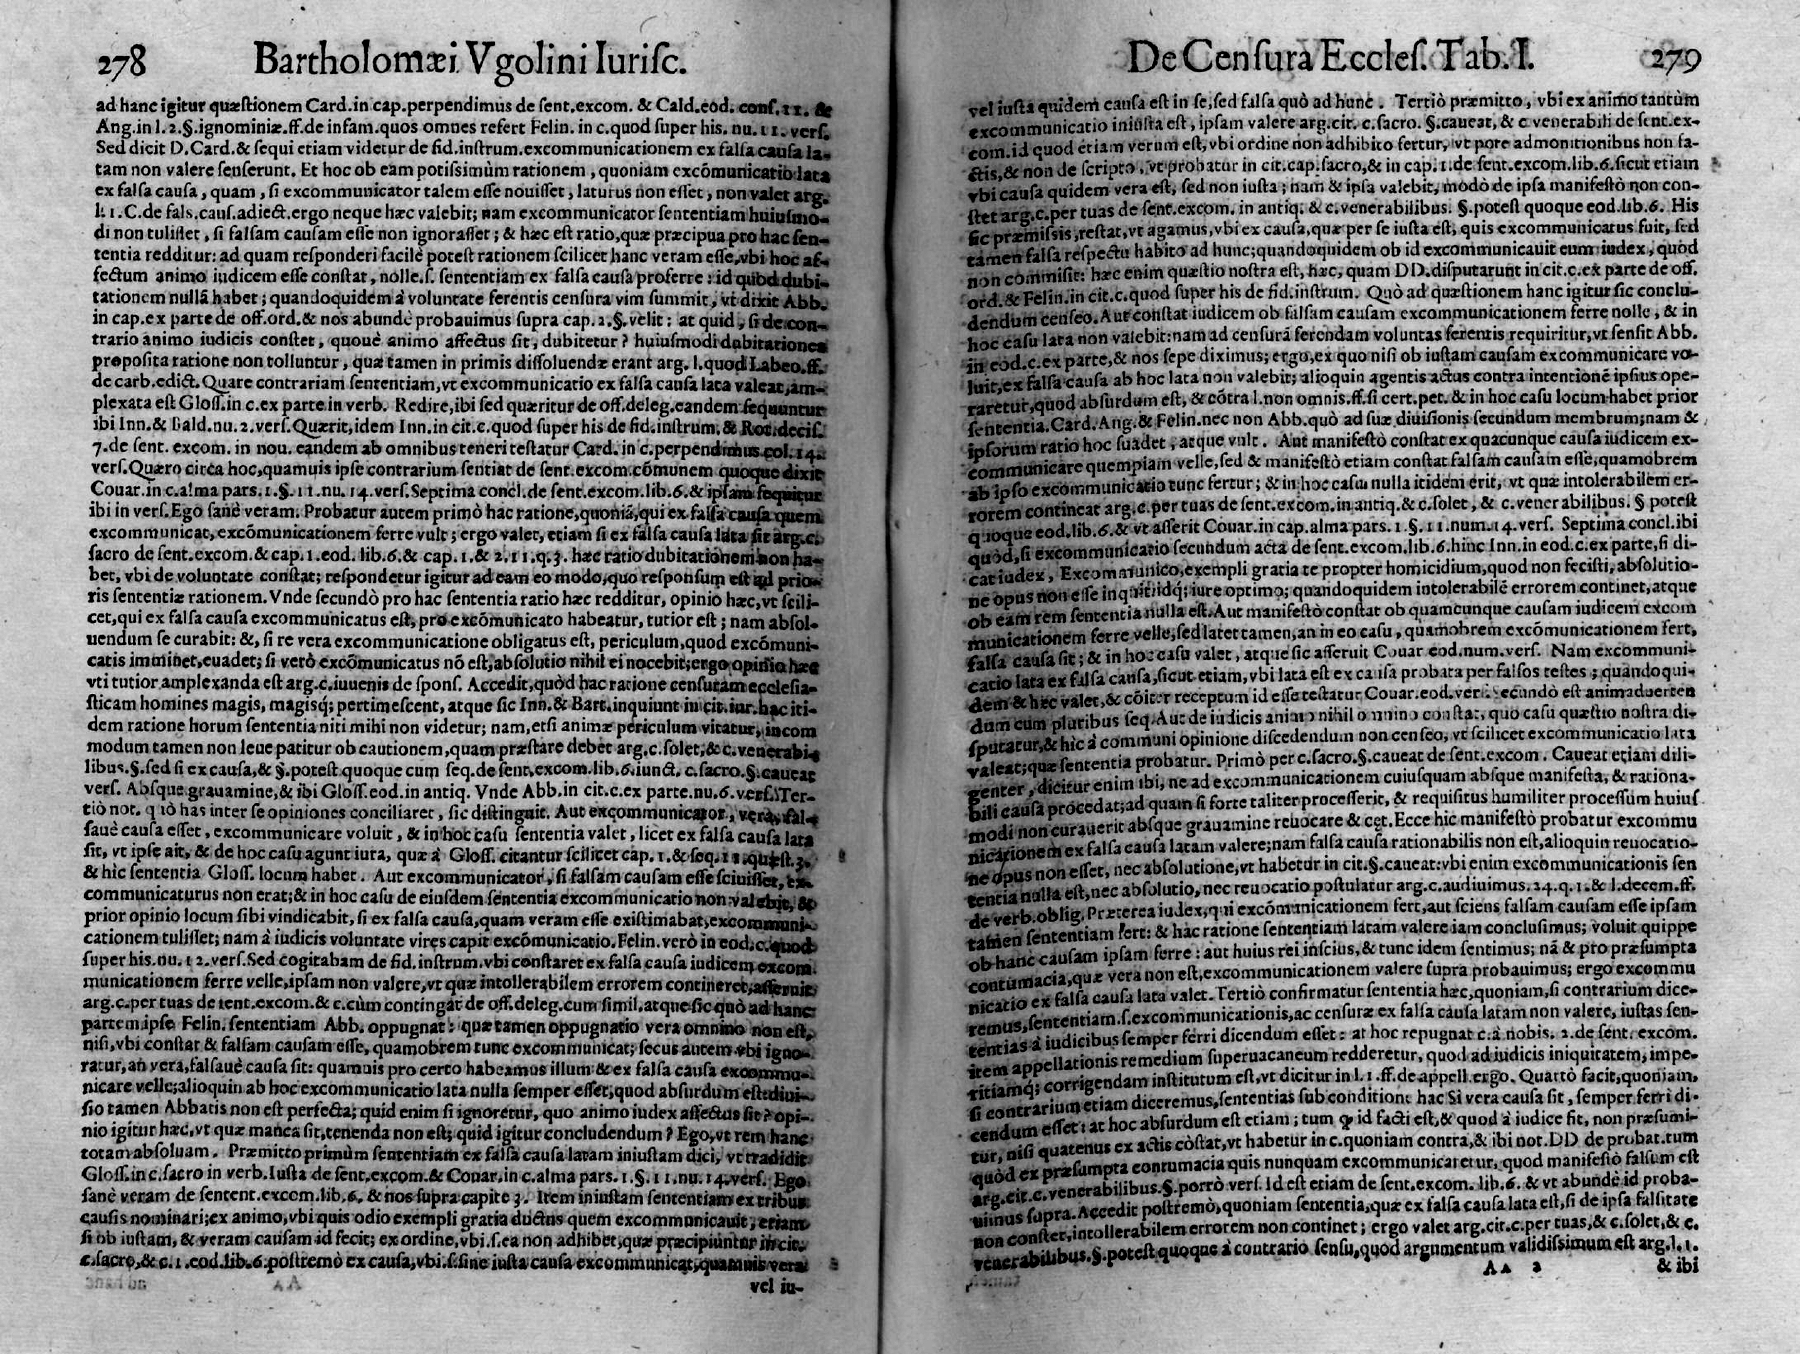 278 Bartholomæi Vgolini Iurisc.
ad hanc igitur quæstionem Card.in cap.perpendimus de sent.excom. & Cald.eod. cons.11. &
Ang.in l.2.§.ignominiæ.ff.de infam.quos omnes refert Felin. in c.quod super his. nu.11. vers.
Sed dicit D.Card.& sequi etiam videtur de fid.instrum.excommunicationem ex falsa causa la-
tam non valere senserunt. Et hoc ob eam potissimùm rationem, quoniam excõmunicatio lata
ex falsa causa, quam, si excommunicator talem esse nouisset, laturus non esset, non valet arg.
l.1.C.de fals.caus.adiect.ergo neque hæc valebit; nam excommunicator sententiam huiusmo-
di non tulisset, si falsam causam esse non ignorasset; & hæc est ratio, quæ præcipua pro hac sen-
tentia redditur: ad quam responderi facilè potest rationem scilicet hanc veram esse, vbi hoc af-
fectum animo iudicem esse constat, nolle.s. sententiam ex falsa causa proferre: id quod dubi-
tationem nullã habet; quandoquidem à voluntate ferentis censura vim summit, vt dixit Abb.
in cap.ex parte de off.ord.& nos abundè probauimus supra cap.2.§.velit: at quid, si de con-
trario animo iudicis constet, quouè animo affectus sit, dubitetur? huiusmodi dubitationes
proposita ratione non tolluntur, quæ tamen in primis dissoluendæ erant arg. l.quod Labeo.ff.
de carb.edict.Quare contrariam sententiam, vt excommunicatio ex falsa causa lata valeat, am-
plexata est Gloss.in c.ex parte.in verb. Redire, ibi sed quæritur de off.deleg.eandem sequuntur
ibi Inn.& Bald.nu.2.vers.Quærit, idem Inn.in cit.c.quod super his de fid.instrum.& Rot.decis.
7.de sent. excom. in nou. eandem ab omnibus teneri testatur Card. in c.perpendimus col.14.
vers.Quæro circa hoc, quamuis ipse contrarium sentiat de sent.excom.cõmunem quoque dixit
Couar.in c.alma pars.1.§.11.nu.14.vers.Septima concl.de sent.excom.lib.6.& ipsam sequitur
ibi in vers.Ego sanè veram. Probatur autem primò hac ratione, quoniã, qui ex falsa causa quem
excommunicat, excõmunicationem ferre vult; ergo valet, etiam si ex falsa causa lata sit arg.c.
sacro de sent.excom.& cap.1.eod. lib.6.& cap.1.& 2.11.q.3. hæc ratio dubitationem non ha-
bet, vbi de voluntate constat; respondetur igitur ad eam eo modo, quo responsum est ad prio-
ris sententiæ rationem. Vnde secundò pro hac sententia ratio hæc redditur, opinio hæc, vt scili-
cet, qui ex falsa causa excommunicatus est, pro excõmunicato habeatur, tutior est; nam absol-
uendum se curabit: &, si re vera excommunicatione obligatus est, periculum, quod excõmuni-
catis imminet, euadet; si verò excõmunicatus nõ est, absolutio nihil ei nocebit; ergo opinio hæc
vti tutior amplexanda est arg.c.iuuenis de spons. Accedit, quòd hac ratione censuram ecclesia-
sticam homines magis, magisq́; pertimescent, atque sic Inn.& Bart.inquiunt in cit.iur.hac iti-
dem ratione horum sententia niti mihi non videtur; nam, etsi animæ periculum vitatur, incom
modum tamen non leue patitur ob cautionem, quam præstare debet arg.c.solet, & c.venerabi-
libus.§.sed si ex causa, & §.potest quoque cum seq.de sent.excom.lib.6.iunct. c.sacro.§.caueat
vers. Absque grauamine, & ibi Gloss.eod.in antiq. Vnde Abb.in cit.c.ex parte.nu.6.vers.Ter-
tiò not. quò has inter se opiniones conciliaret, sic distinguit. Aut excommunicator, vera, fal-
sauè causa esset, excommunicare voluit, & in hoc casu sententia valet, licet ex falsa causa lata
sit, vt ipse ait, & de hoc casu agunt iura, quæ à Gloss. citantur scilicet cap. 1.& seq.11.quæst.3.
& hic sententia Gloss. locum habet. Aut excommunicator, si falsam causam esse sciuisset, ex-
communicaturus non erat; & in hoc casu de eiusdem sententia excommunicatio non valebit, &
prior opinio locum sibi vindicabit, si ex falsa causa, quam veram esse existimabat, excommuni-
cationem tulisset; nam à iudicis voluntate vires capit excõmunicatio. Felin. verò in eod.c.quod
super his.nu.12.vers.Sed cogitabam de fid.instrum.vbi constaret ex falsa causa iudicem excom
municationem ferre velle, ipsam non valere, vt quæ intollerabilem errorem contineret, asseruit
arg.c.per tuas de sent.excom.& c.cùm contingat de off.deleg.cum simil.atque sic quò ad hanc
partem ipse Felin. sententiam Abb. oppugnat: quæ tamen oppugnatio vera omnino non est,
nisi, vbi constat & falsam causam esse, quamobrem tunc excommunicat; secus autem vbi igno-
ratur, an vera, falsauè causa sit: quamuis pro certo habeamus illum & ex falsa causa excommu-
nicare velle; alioquin ab hoc excommunicatio lata nulla semper esset, quod absurdum est: diui-
sio tamen Abbatis non est perfecta; quid enim si ignoretur, quo animo iudex affectus sit? opi-
nio igitur hæc, vt quæ manca sit, tenenda non est; quid igitur concludendum? Ego, vt rem hanc
totam absoluam. Præmitto primùm sententiam ex falsa causa latam iniustam dici, vt tradidit
Gloss.in c.sacro in verb.Iusta de sent.excom.& Couar.in c.alma pars.1.§.11.nu.14.vers. Ego
sanè veram de sentent.excom.lib.6, & nos supra capite 3. Item iniustam sententiam ex tribus
causis nominari; ex animo, vbi quis odio exempli gratia ductus quem excommunicauit, etiam
si ob iustam, & veram causam id fecit; ex ordine, vbi.s.ea non adhibet, quæ præcipiuntur in cit.
c.sacro, & c.1.eod.lib.6.postremò ex causa, vbi.s.sine iusta causa excommunicat, quamuis vera
vel iu-
De Censura Eccles. Tab. I. 279
vel iusta quidem causa est in se, sed falsa quò ad hunc. Tertiò præmitto, vbi ex animo tantùm
excommunicatio iniusta est, ipsam valere arg.cit. c.sacro. §.caueat, & c venerabili de sent.ex-
com.id quod etiam verum est, vbi ordine non adhibito fertur, vt pote admonitionibus non fa-
ctis, & non de scripto, vt probatur in cit.cap.sacro, & in cap.1.de sent.excom.lib.6.sicut etiam
vbi causa quidem vera est, sed non iusta; nam & ipsa valebit, modò de ipsa manifestò non con-
stet arg.c.per tuas de sent.excom. in antiq. & c.venerabilibus. §.potest quoque eod.lib.6. His
sic præmissis, restat, vt agamus, vbi ex causa, quæ per se iusta est, quis excommunicatus fuit, sed
tamen falsa respectu habito ad hunc; quandoquidem ob id excommunicauit eum iudex, quod
non commisit: hæc enim quæstio nostra est, hæc, quam DD.disputarunt in cit.c.ex parte de off.
ord.& Felin.in cit.c.quod super his de fid.instrum. Quò ad quæstionem hanc igitur sic conclu-
dendum censeo. Aut constat iudicem ob falsam causam excommunicationem ferre nolle, & in
hoc casu lata non valebit: nam ad censurã ferendam voluntas ferentis requiritur, vt sensit Abb.
in eod.c.ex parte, & nos sepe diximus; ergo, ex quo nisi ob iustam causam excommunicare vo-
luit, ex falsa causa ab hoc lata non valebit; alioquin agentis actus contra intentionẽ ipsius ope-
raretur, quod absurdum est, & cõtra l.non omnis.ff.si cert.pet. & in hoc casu locum habet prior
sententia.Card.Ang.& Felin.nec non Abb.quò ad suæ diuisionis secundum membrum; nam &
ipsorum ratio hoc suadet, atque vult. Aut manifestò constat ex quacunque causa iudicem ex-
communicare quempiam velle, sed & manifestò etiam constat falsam causam esse, quamobrem
ab ipso excommunicatio tunc fertur; & in hoc casu nulla itidem erit, vt quæ intolerabilem er-
rorem contineat arg.c.per tuas de sent.excom.in antiq.& c.solet, & c.venerabilibus. § potest
quoque eod.lib.6.& vt asserit Couar.in cap.alma pars.1.§.11.num.14.vers. Septima concl.ibi
quòd, si excommunicatio secundum acta de sent.excom.lib.6.hinc Inn.in eod.c.ex parte, si di-
cat iudex, Excommunico, exempli gratia te propter homicidium, quod non fecisti, absolutio-
ne opus non esse inquit; idq́; iure optimo; quandoquidem intolerabilẽ errorem continet, atque
ob eam rem sententia nulla est. Aut manifestò constat ob quamcunque causam iudicem excom
municationem ferre velle, sed latet tamen, an in eo casu, quamobrem excõmunicationem fert,
falsa causa sit; & in hoc casu valet, atque sic asseruit Couar.eod.num.vers. Nam excommuni-
catio lata ex falsa causa, sicut etiam, vbi lata est ex causa probata per falsos testes; quandoqui-
dem & hæc valet, & cõiter receptum id esse testatur Couar.eod.vers.secundò est animaduerten
dum cum pluribus seq. Aut de iudicis animo nihil omnino constat, quo casu quæstio nostra di-
sputatur, & hic à communi opinione discedendum non censeo, vt scilicet excommunicatio lata
valeat; quæ sententia probatur. Primò per c.sacro.§.caueat de sent.excom. Caueat etiam dili-
genter, dicitur enim ibi, ne ad excommunicationem cuiusquam absque manifesta, & rationa-
bili causa procedat; ad quam si forte taliter processerit, & requisitus humiliter processum huius
modi non curauerit absque grauamine reuocare & cęt. Ecce hic manifestò probatur excommu
nicationem ex falsa causa latam valere; nam falsa causa rationabilis non est, alioquin reuocatio-
ne opus non esset, nec absolutione, vt habetur in cit.§.caueat: vbi enim excommunicationis sen
tentia nulla est, nec absolutio, nec reuocatio postulatur arg.c.audiuimus.24.q.1.& l.decem.ff.
de verb.oblig. Præterea iudex, qui excõmunicationem fert, aut sciens falsam causam esse ipsam
tamen sententiam fert: & hac ratione sententiam latam valere iam conclusimus; voluit quippe
ob hanc causam ipsam ferre: aut huius rei inscius, & tunc idem sentimus; nã & pro præsumpta
contumacia, quæ vera non est, excommunicationem valere supra probauimus; ergo excommu
nicatio ex falsa causa lata valet. Tertiò confirmatur sententia hæc, quoniam, si contrarium dice-
remus, sententiam.s.excommunicationis, ac censuræ ex falsa causa latam non valere, iustas sen-
tentias à iudicibus semper ferri dicendum esset: at hoc repugnat c.à nobis. 2.de sent. excom.
item appellationis remedium superuacaneum redderetur, quod ad iudicis iniquitatem, impe-
ritiamq́; corrigendam institutum est, vt dicitur in l.1.ff.de appell.ergo. Quartò facit, quoniam,
si contrarium etiam diceremus, sententias sub conditione hac Si vera causa sit, semper ferri di-
cendum esset: at hoc absurdum est etiam; tum ꝙ id facti est, & quod à iudice fit, non præsumi-
tur, nisi quatenus ex actis cõstat, vt habetur in c.quoniam contra, & ibi not.DD de probat.tum
quòd ex præsumpta contumacia quis nunquam excommunicaretur, quod manifestò falsum est
arg.cit.c.venerabilibus.§.porrò vers. Id est etiam de sent.excom. lib.6. & vt abundè id proba-
uimus supra. Accedit postremò, quoniam sententia, quæ ex falsa causa lata est, si de ipsa falsitate
non constet, intollerabilem errorem non continet; ergo valet arg.cit.c.per tuas, & c.solet, & c.
venerabilibus.§.potest quoque à contrario sensu, quod argumentum validissimum est arg.l.1.
Aa 2 & ibi